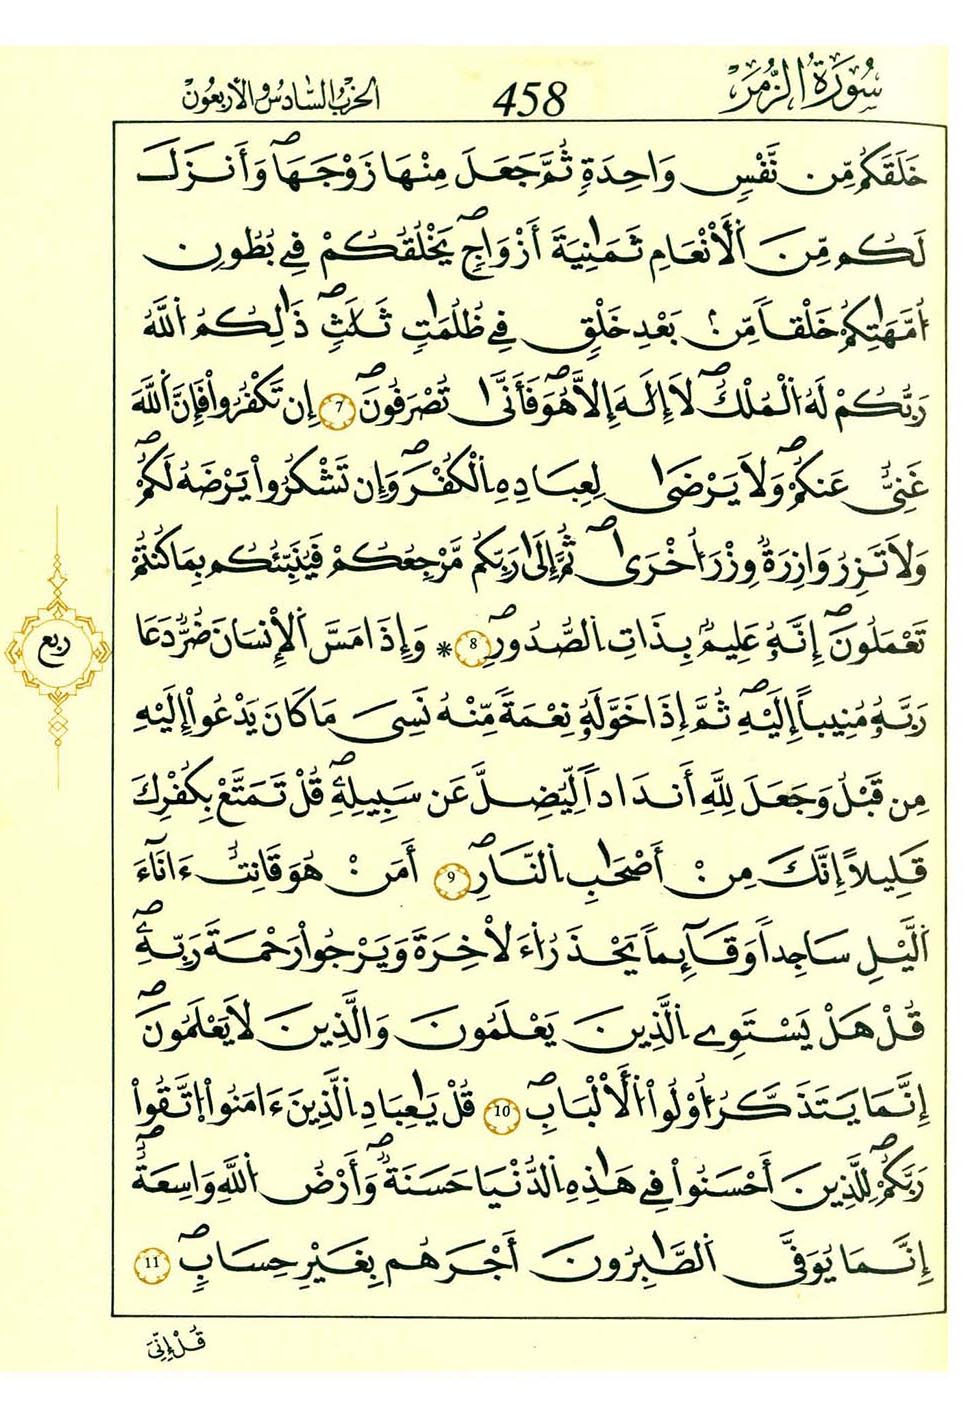 سُورَةُ الزُّمَرِ 458 الحِزْبُ السَّادِسُ وَالْأَرْبَعُونَ
خَلَقَكُم مِّن نَّفْسٖ وَٰحِدَةٖ ثُمَّ جَعَلَ مِنْهَا زَوْجَهَاۖ وَأَنزَلَ
لَكُم مِّنَ اَ۬لَانْعَٰمِ ثَمَٰنِيَةَ أَزْوَٰجٖۖ يَخْلُقُكُمْ فِے بُطُونِ
أُمَّهَٰتِكُمْ خَلْقاٗ مِّنۢ بَعْدِ خَلْقٖ فِے ظُلُمَٰتٖ ثَلَٰثٖۖ ذَٰلِكُمُ اُ۬للَّهُ
رَبُّكُمْ لَهُ اُ۬لْمُلْكُۖ لَآ إِلَٰهَ إِلَّا هُوَۖ فَأَنَّىٰ تُصْرَفُونَۖ 7 إِن تَكْفُرُواْ فَإِنَّ اَ۬للَّهَ
غَنِيٌّ عَنكُمْۖ وَلَا يَرْضَىٰ لِعِبَادِهِ اِ۬لْكُفْرَۖ وَإِن تَشْكُرُواْ يَرْضَهُ لَكُمْۖ
وَلَا تَزِرُ وَازِرَةٞ وِزْرَ أُخْرَىٰۖ ثُمَّ إِلَىٰ رَبِّكُم مَّرْجِعُكُمْ فَيُنَبِّئُكُم بِمَا كُنتُمْ
تَعْمَلُونَۖ إِنَّهُۥ عَلِيمُۢ بِذَاتِ اِ۬لصُّدُورِۖ 8 * وَإِذَا مَسَّ اَ۬لِانسَٰنَ ضُرّٞ دَعَا
رَبَّهُۥ مُنِيباً إِلَيْهِۖ ثُمَّ إِذَا خَوَّلَهُۥ نِعْمَةٗ مِّنْهُ نَسِيَ مَا كَانَ يَدْعُوٓاْ إِلَيْهِ
مِن قَبْلُ وَجَعَلَ لِلهِ أَندَاداٗ لِّيُضِلَّ عَن سَبِيلِهِۦۖ قُلْ تَمَتَّعْ بِكُفْرِكَ
قَلِيلاً إِنَّكَ مِنْ أَصْحَٰبِ اِ۬لنَّارِۖ 9 أَمَنْ هُوَ قَٰنِتٌ ءَانَآءَ
اَ۬ليْلِ سَاجِداٗ وَقَآئِماٗ يَحْذَرُ اُ۬لَاخِرَةَ وَيَرْجُواْ رَحْمَةَ رَبِّهِۦۖ
قُلْ هَلْ يَسْتَوِے اِ۬لذِينَ يَعْلَمُونَ وَالذِينَ لَا يَعْلَمُونَۖ
إِنَّمَا يَتَذَكَّرُ أُوْلُواْ اُ۬لَالْبَٰبِۖ 10 قُلْ يَٰعِبَادِ اِ۬لذِينَ ءَامَنُواْ اُ۪تَّقُواْ
رَبَّكُمْۖ لِلذِينَ أَحْسَنُواْ فِے هَٰذِهِ اِ۬لدُّنْيَا حَسَنَةٞۖ وَأَرْضُ اُ۬للَّهِ وَٰسِعَةٌۖ
رُبع
إِنَّمَا يُوَفَّى اَ۬لصَّٰبِرُونَ أَجْرَهُم بِغَيْرِ حِسَابٖۖ 11
قُلْ إِنِّيَ